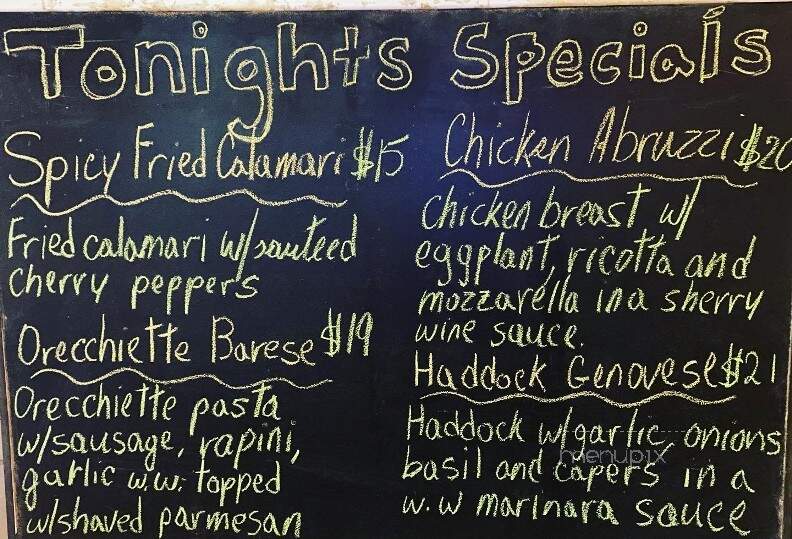 Tonights Specials
Spicy Fried Calamari $15
Fried calamari w/sauteed
cherry peppers
Orecchiette Barese $19
Orecchiette pasta
w/sausage, rapini,
garlic w.w. topped
w/shaved parmesan
Chicken Abruzzi $20
chicken breast w/
eggplant, ricotta and
mozzarella in a sherry
wine sauce.
Haddock Genovese $21
Haddock w/garlic, onions
basil and capers in a
w.w marinara sauce
menupix